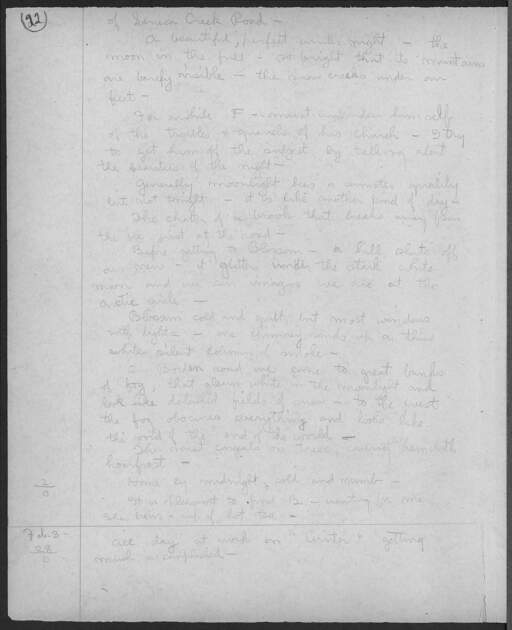 92
of Seneca Creek Road -
A beautiful, perfect winter night - the
moon in the full - so bright that the mountains
are barely visible - the snow creaks under our
feet -
For awhile F - must unburden himself
of the troubles & quarrels of his church - I try
to get him off the subject by talking about
the beauties of the night -
Generally moonlight has a quality
but not tonight - it is like another kind of day -
The of a brook that breaks away from
the ice just at the road -
Before getting to Blossom - a hill cuts off
our view - it glitters under the stark white
moon and we can imagine we are at the
arctic circle -
Blossom cold and quiet but most windows
with lights - one chimney sends up a thin
white silent column of smoke -
road we come to great banks
of fog, that gleam white in the moonlight and
look like detached fields of snow - to the west
the fog obscures everything and looks like
the end of the world -
The mist congeals on trees, them with
hoarfrost -
Home by midnight, cold and numb -
pleasant to find B - waiting for me
a cup of hot tea -
2
0
Feb 3 -
28
0
All day at work on "Winter" getting
much accomplished -